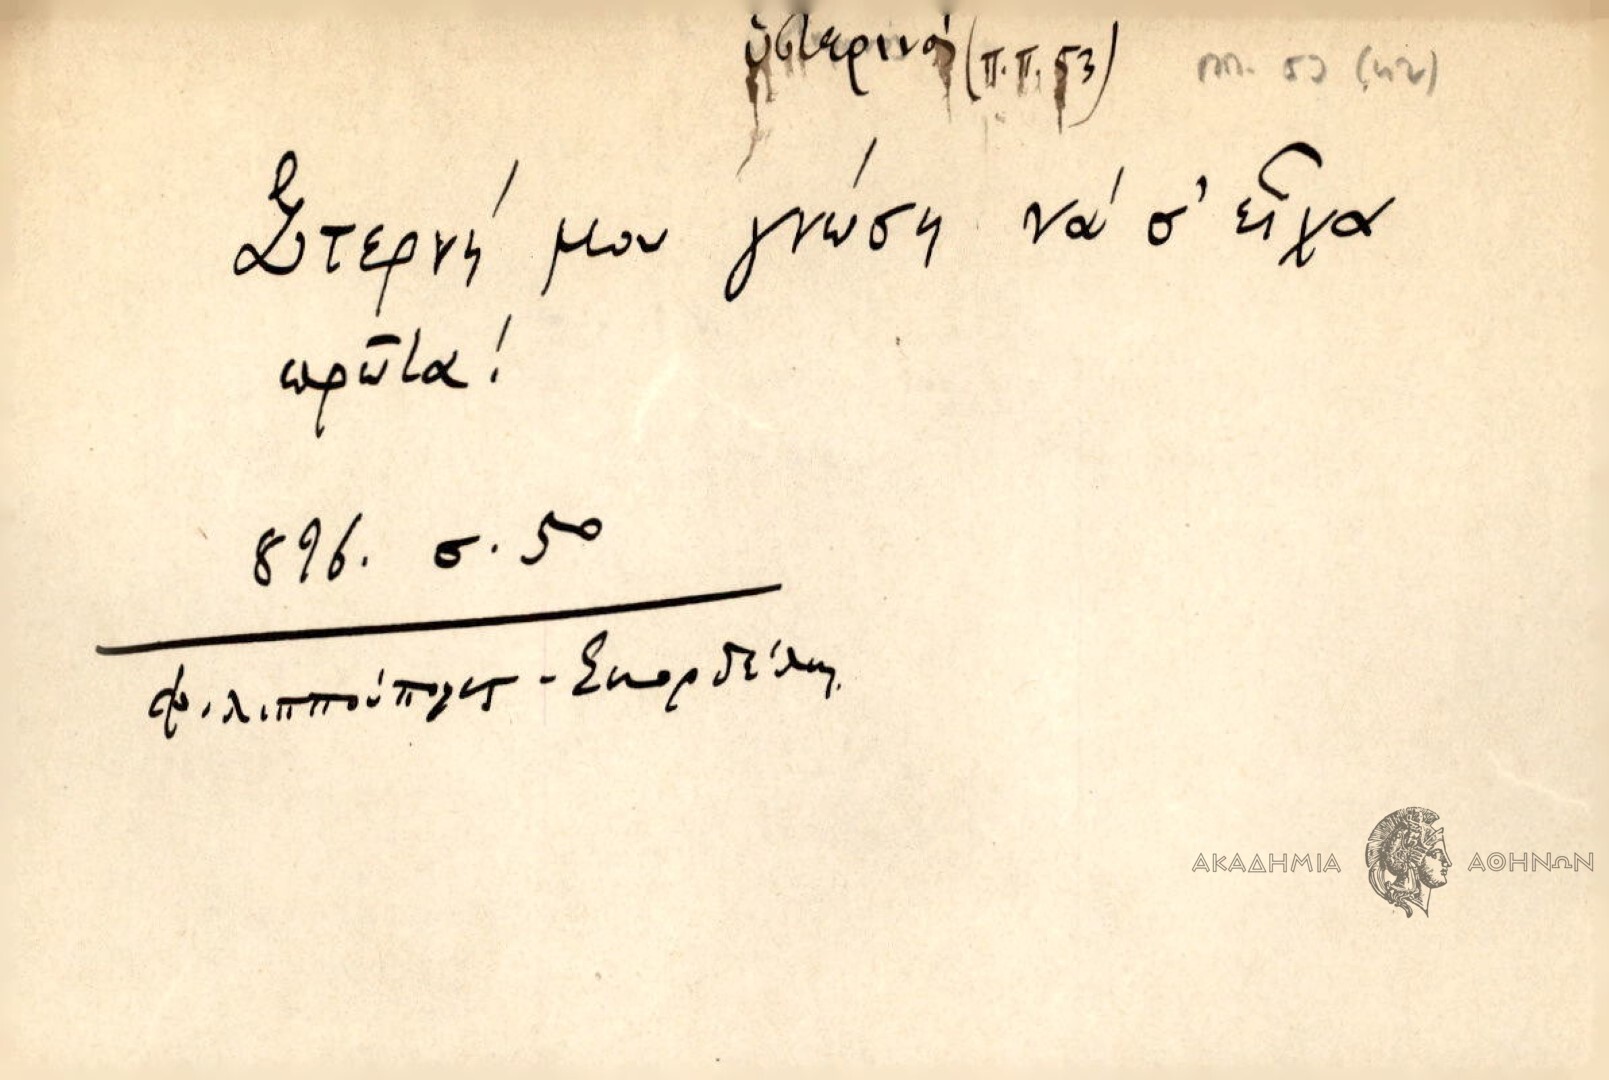 ὑστερινός (π.π. 53) ππ. 53 (42)
Στερνή μου γνώση νά σ' εἶχα
πρῶτα!
896. σ. 50
Φιλιππούπολις - Σκορδέλης
ΑΚΑΔΗΜΙΑ ΑΘΗΝΩΝ